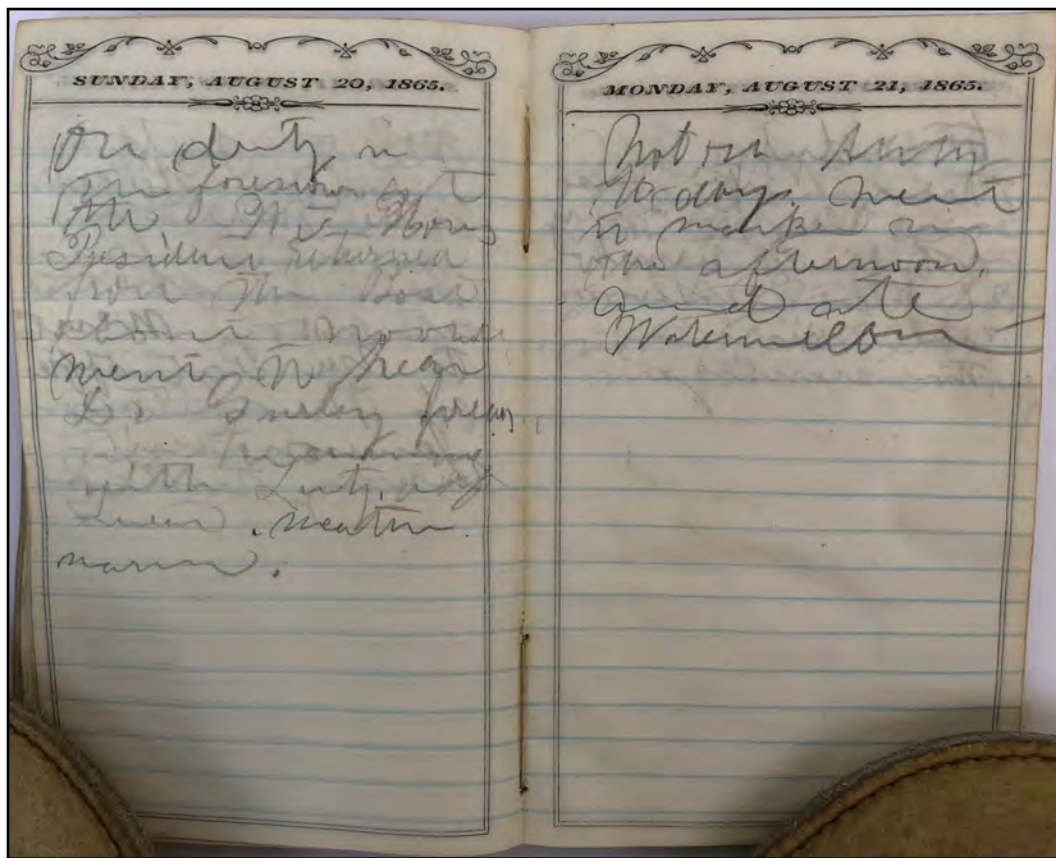 SUNDAY, AUGUST 20, 1865.
On duty in
the forenoon at
the W. Hous
President returned
from the
about
went to hear
Dr Gurley preach,
with Lutz, and
. Weather
warm.
MONDAY, AUGUST 21, 1865.
Not on duty
to day. Went
to market in
the afternoon,
and ate
Watermelon